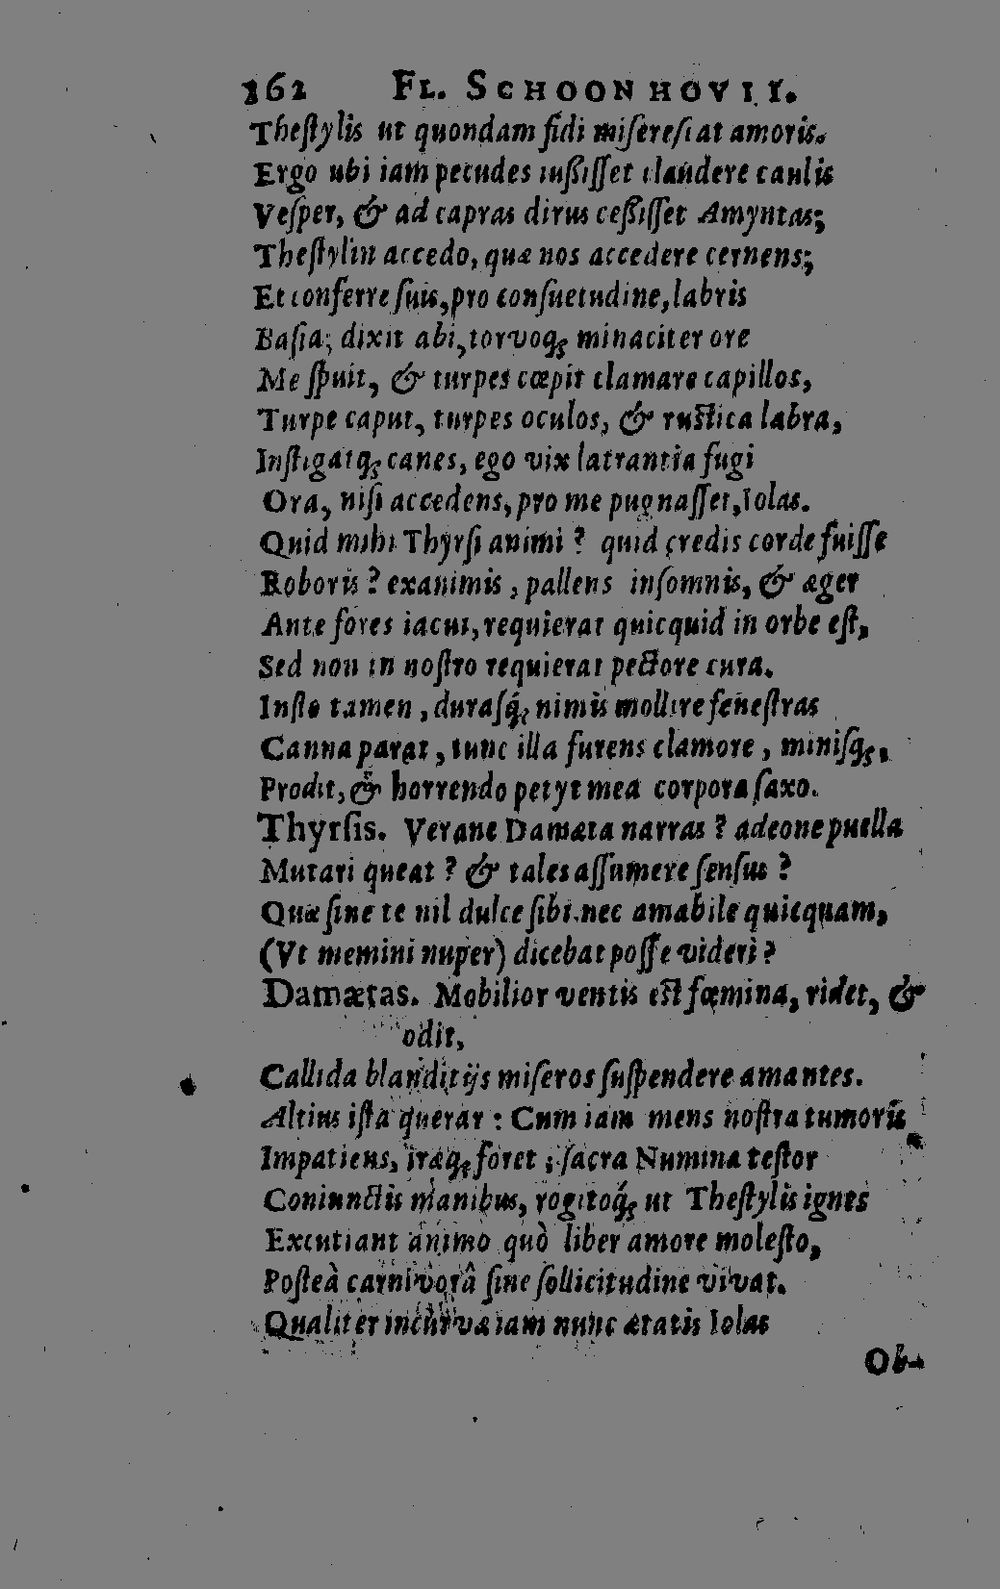 162 FL. SCHOONHOVII.
Theſtylis ut quondam fidi miſereſcat amoris.
Ergo ubi iam pecudes iuſsiſſet claudere caulis
Veſper, & ad capras dirus ceſsiſſet Amyntas;
Theſtylin accedo, quæ nos accedere cernens;
Et conferre ſuis, pro conſuetudine, labris
Baſia; dixit abi, torvoq; minaciter ore
Me ſpuit, & turpes cœpit clamare capillos,
Turpe caput, turpes oculos, & ruſtica labra,
Inſtigatq; canes, ego vix latrantia fugi
Ora, niſi accedens, pro me pugnaſſet, Iolas.
Quid mihi Thyrſi animi ? quid credis corde fuiſſe
Roboris ? exanimis, pallens inſomnis, & æger
Ante fores iacui, requierat quicquid in orbe eſt,
Sed non in noſtro requierat pectore cura.
Inſto tamen, duraſq́; nimis mollire feneſtras
Canna parat, tunc illa furens clamore, miniſq;,
Prodit, & horrendo petyt mea corpora ſaxo.
Thyrſis. Verane Damæta narras ? adeone puella
Mutari queat ? & tales aſſumere ſenſus ?
Quæ ſine te nil dulce ſibi nec amabile quicquam,
(Vt memini nuper) dicebat poſſe videri ?
Damætas. Mobilior ventis eſt fœmina, ridet, &
odit,
Callida blanditijs miſeros ſuſpendere amantes.
Altius iſta querar : Cum iam mens noſtra tumoris
Impatiens, iræq; foret ; ſacra Numina teſtor
Coniunctis manibus, rogitoq́; ut Theſtylis ignes
Excutiant animo quò liber amore moleſto,
Poſteà carnivorâ ſine ſollicitudine vivat.
Qualiter incurvæ iam nunc ætatis Iolas
Ob-